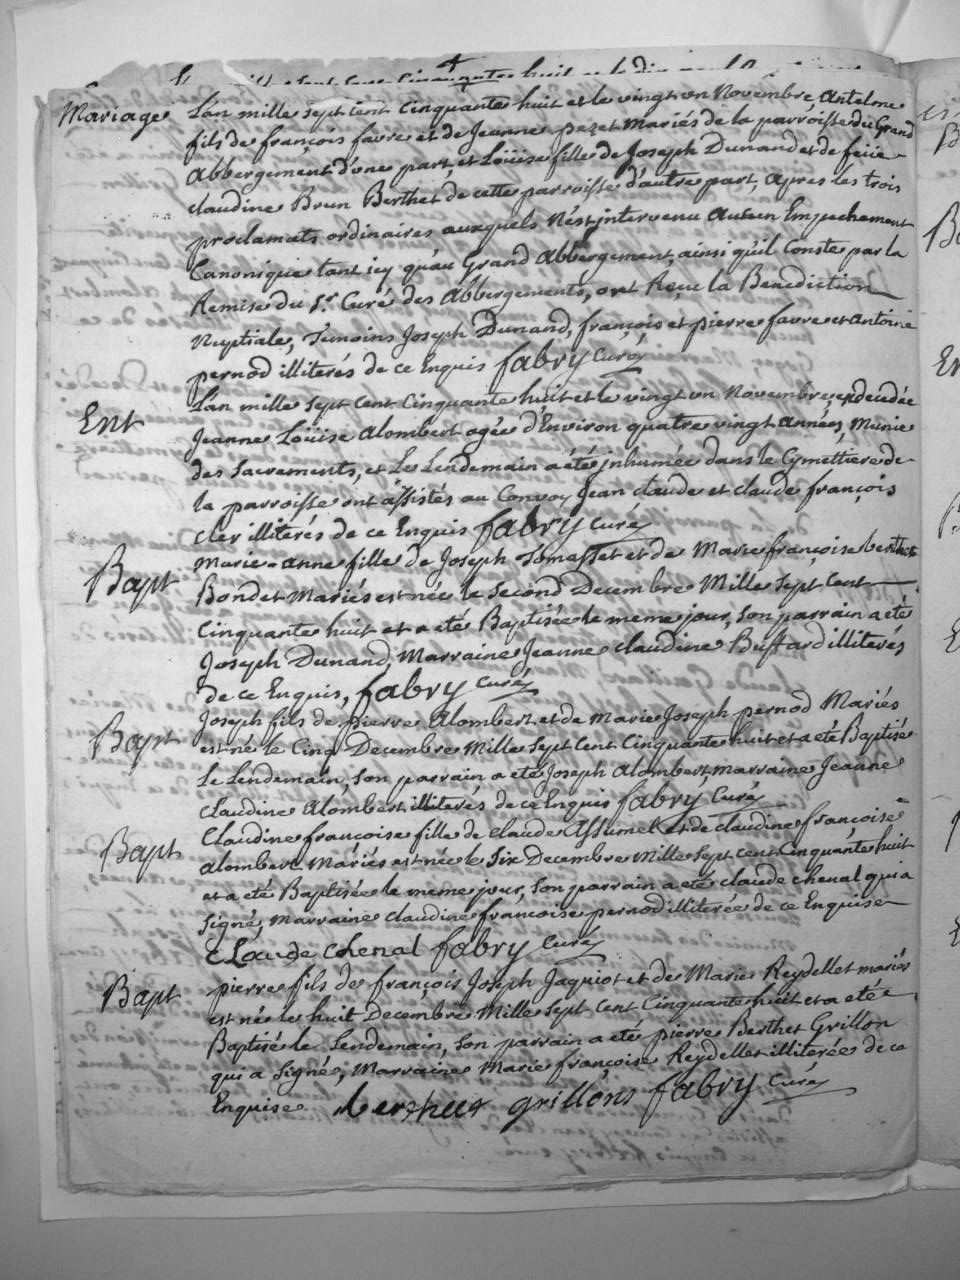 Mariage
L'an mille sept cent cinquante huit et le vingt un Novembre, Antelme
fils de françois favre et de Jeanne pezet Mariés de la parroisse du Grand
Abbergement d'une part, et Loüise fille de Joseph Dunand et de feüe
claudine Brun Berthet de cette parroisse d'autre part, apres les trois
proclamats ordinaires auxquels n'est intervenu Aucun Empechement
Canonique tant icy qu'au Grand Abbergement, ainsi qu'il conste par la
Remise du Sr Curé des Abbergements, ont Reçu la Benediction
Nuptiale, Temoins Joseph Dunand, françois et pierre favre et antoine
pernod illiterés de ce Enquis fabry Curé
Ent
L'an mille sept Cent Cinquante huit et le vingt un Novembre, est decedée
Jeanne Loüise Alombert agée d'Environ quatre vingt Années, Munie
des Sacrements, et Le Lendemain a été inhumée dans le Cymettiere de
la parroisse ont assistés au Convoy Jean claude et claude françois
illiterés de ce Enquis fabry Curé
Bapt
Marie-anne fille de Joseph Tomasset et de Marie françoise berthet
Bondet Mariés est née le second Decembre Mille sept Cent
Cinquante huit et a eté Baptisée le meme jour, son parrain a eté
Joseph Dunand, Marraine Jeanne claudine Bustard illiterés
de ce Enquis, fabry Curé
Bapt
Joseph fils de pierre Alombert et de Marie Joseph pernod Mariés
est né le Cinq Decembre Mille sept Cent Cinquante huit et a eté Baptisé
Le Lendemain, son parrain a eté Joseph Alombert marraine Jeanne
Claudine Alombert illiterés de ce Enquis fabry Curé
Bapt
Claudine françoise fille de claude Assumel et de claudine françoise
Alombert Mariés est née le six Decembre Mille sept cent cinquante huit
et a eté Baptisée le meme jour, son parrain a eté claude chenal qui a
signé, marraine claudine françoise pernod illiterée de ce Enquise
CLaude Chenal fabry Curé
Bapt
pierre fils de françois Joseph Jaquiot et de Marie Reydellet mariés
est né le huit Decembre Mille sept Cent Cinquante huit et a eté
Baptisé le Lendemain, son parrain a eté pierre Berthet Grillon
qui a signé, Marraine Marie françoise Reydellet illiterée de ce
Enquise berthet grillons fabry Curé